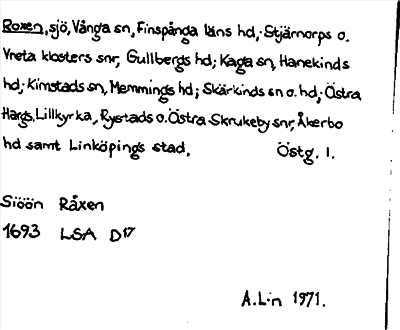 Roxen, sjö, Vånga sn, Finspånga läns hd; Stjärnorps o.
Vreta klosters snr, Gullbergs hd; Kaga sn, Hanekinds
hd; Kimstads sn, Memmings hd; Skärkinds sn o. hd; Östra
Hargs, Lillkyrka, Rystads o. Östra Skrukeby snr, Åkerbo
hd samt Linköpings stad. Östg. l.
Siöön Råxen
1693 LSA D17
A.L:n 1971.